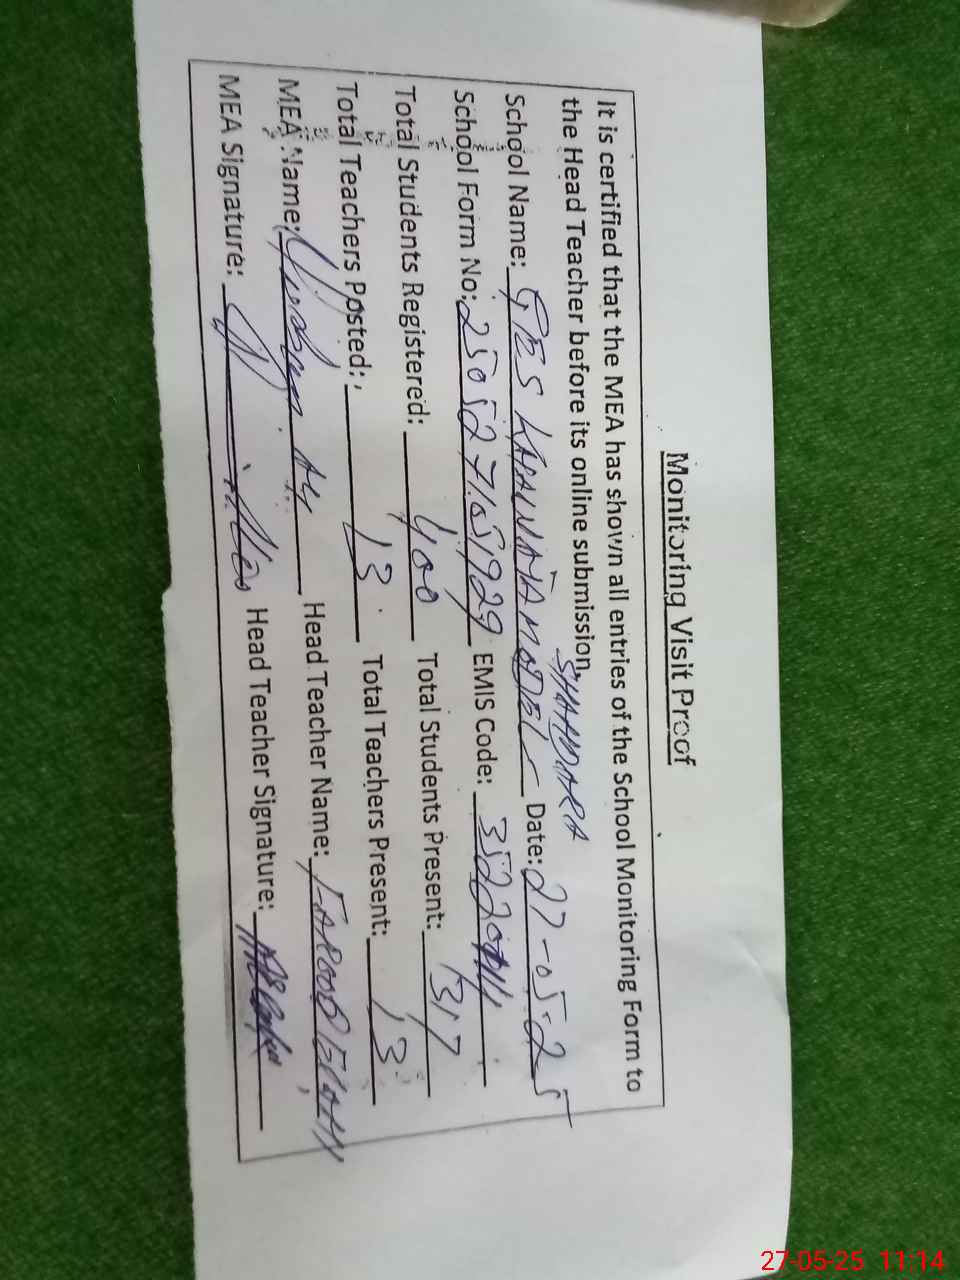 Monitoring Visit Proof
It is certified that the MEA has shown all entries of the School Monitoring Form to
the Head Teacher before its online submission.
SHAHDARA
School Name: GES MODEL Date: 27-05-25
School Form No: EMIS Code:
Total Students Registered: 400 Total Students Present: 317
Total Teachers Posted: 13 Total Teachers Present: 13
MEA Name: Head Teacher Name: FAROOQ ELAHI
MEA Signature: Head Teacher Signature:
27-05-25 11:14